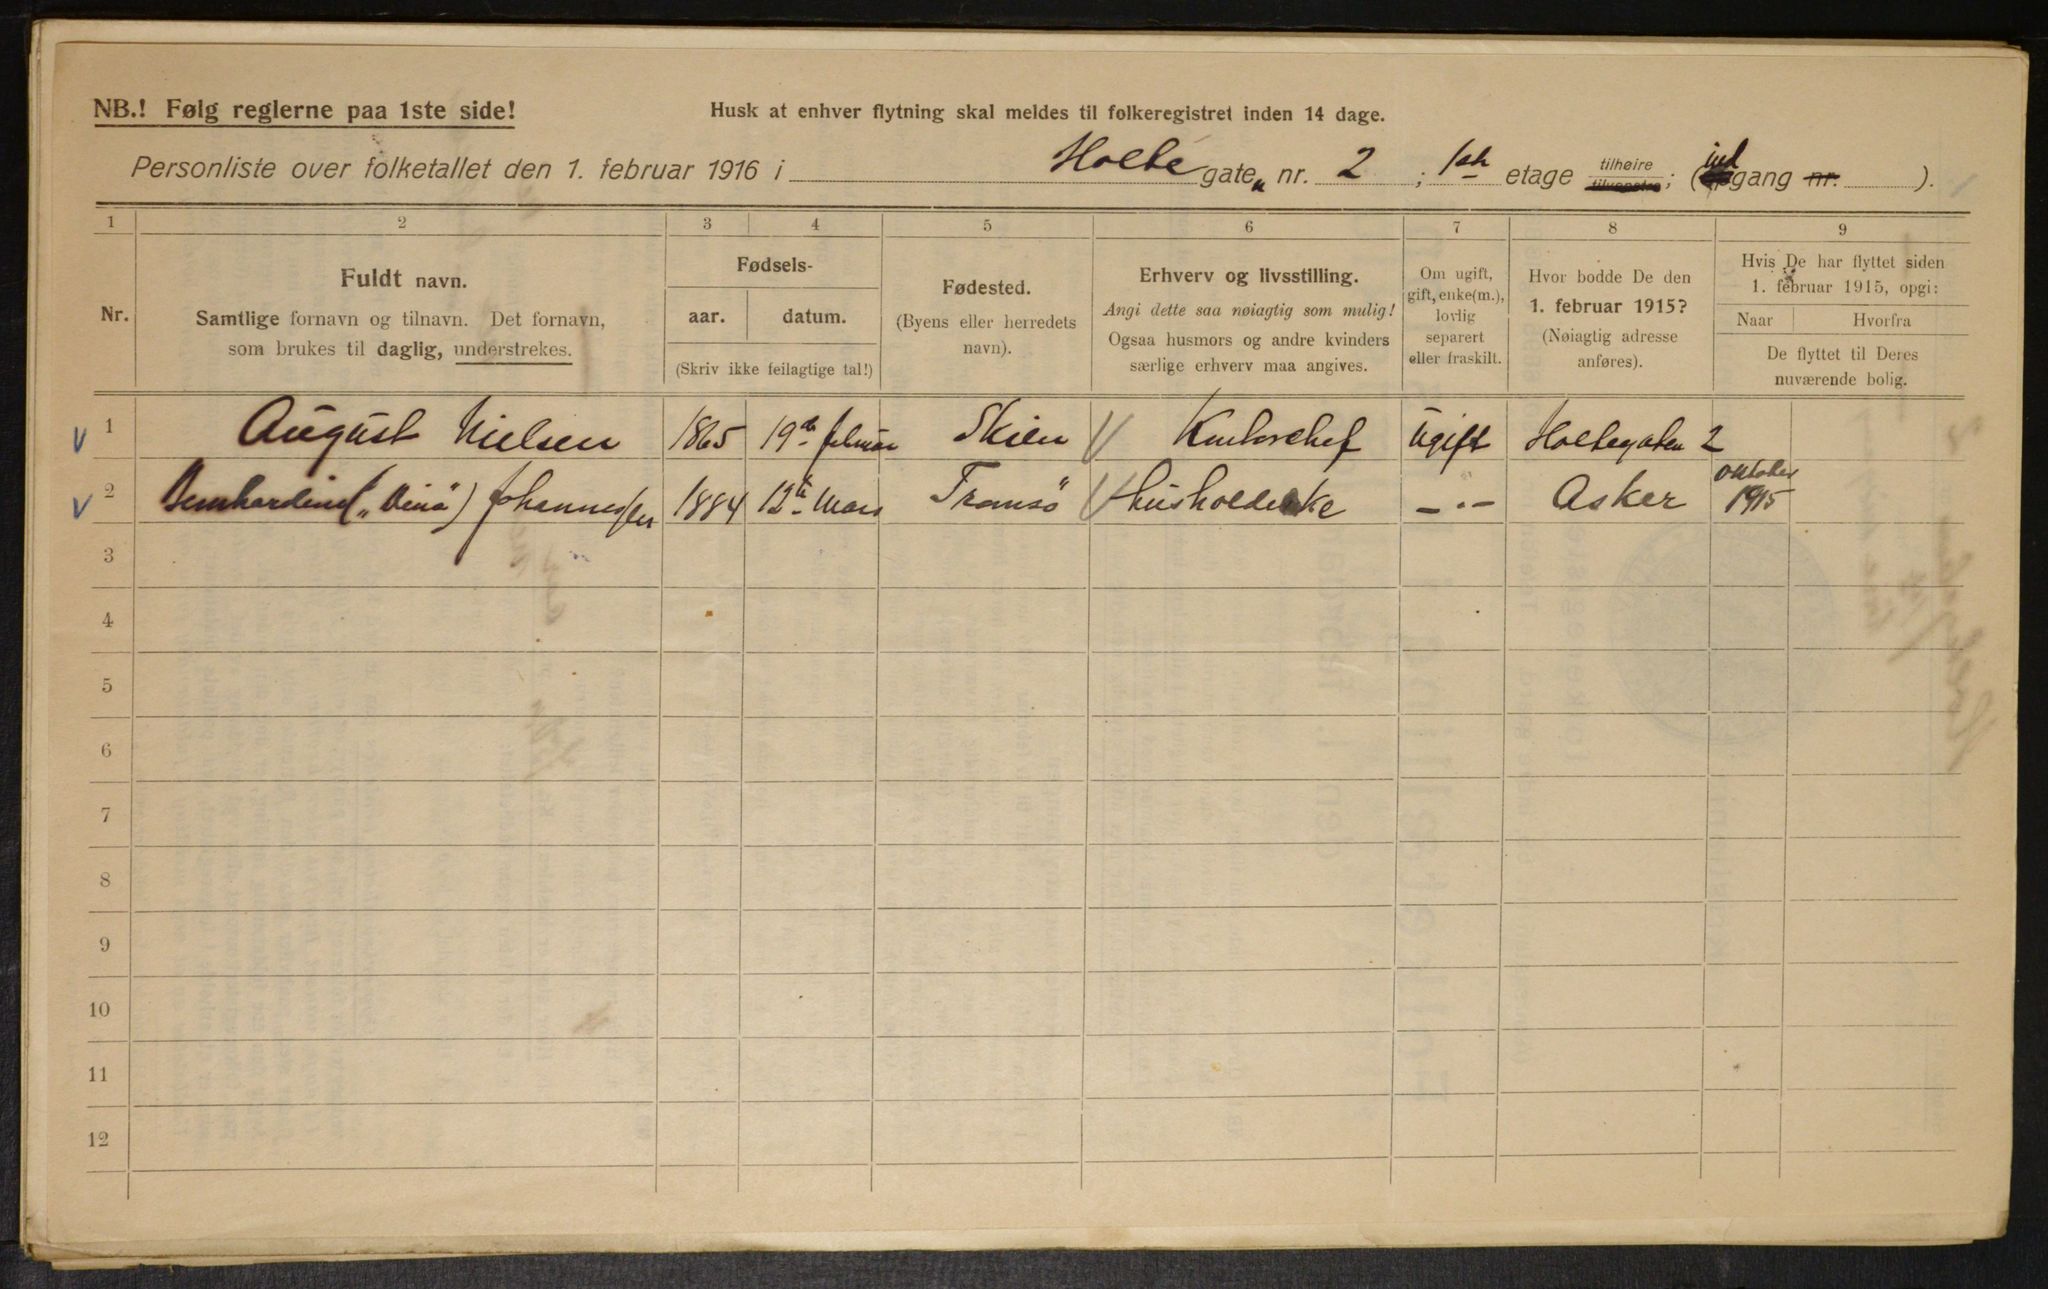 NB.! Følg reglerne paa 1ste side!
Husk at enhver flytning skal meldes til folkeregistret inden 14 dage.
Personliste over folketallet den 1. februar 1916 i Holte gate„ nr. 2 ; 1ste etage tilhøire tilvenstre; (indgang nr. ).
1 2 3 4 5 6 7 8 9
Nr.
Fuldt navn.
Samtlige fornavn og tilnavn. Det fornavn,
som brukes til daglig, understrekes.
Fødsels-
aar. datum.
(Skriv ikke feilagtige tal!)
Fødested.
(Byens eller herredets
navn).
Erhverv og livsstilling.
Angi dette saa nøiagtig som mulig!
Ogsaa husmors og andre kvinders
særlige erhverv maa angives.
Om ugift,
gift, enke(m.),
lovlig
separert
eller fraskilt.
Hvor bodde De den
1. februar 1915?
(Nøiagtig adresse
anføres).
Hvis De har flyttet siden
1. februar 1915, opgi:
Naar Hvorfra
De flyttet til Deres
nuværende bolig.
V 1 August Nielsen 1865 19de februar Skien V Kontorchef Ugift Holtegaten 2
V 2 Bernhardine („Dina") Johannessen 1884 12te Mars Tromsö V husholderske -"- Asker oktober 1915
3
4
5
6
7
8
9
10
11
12